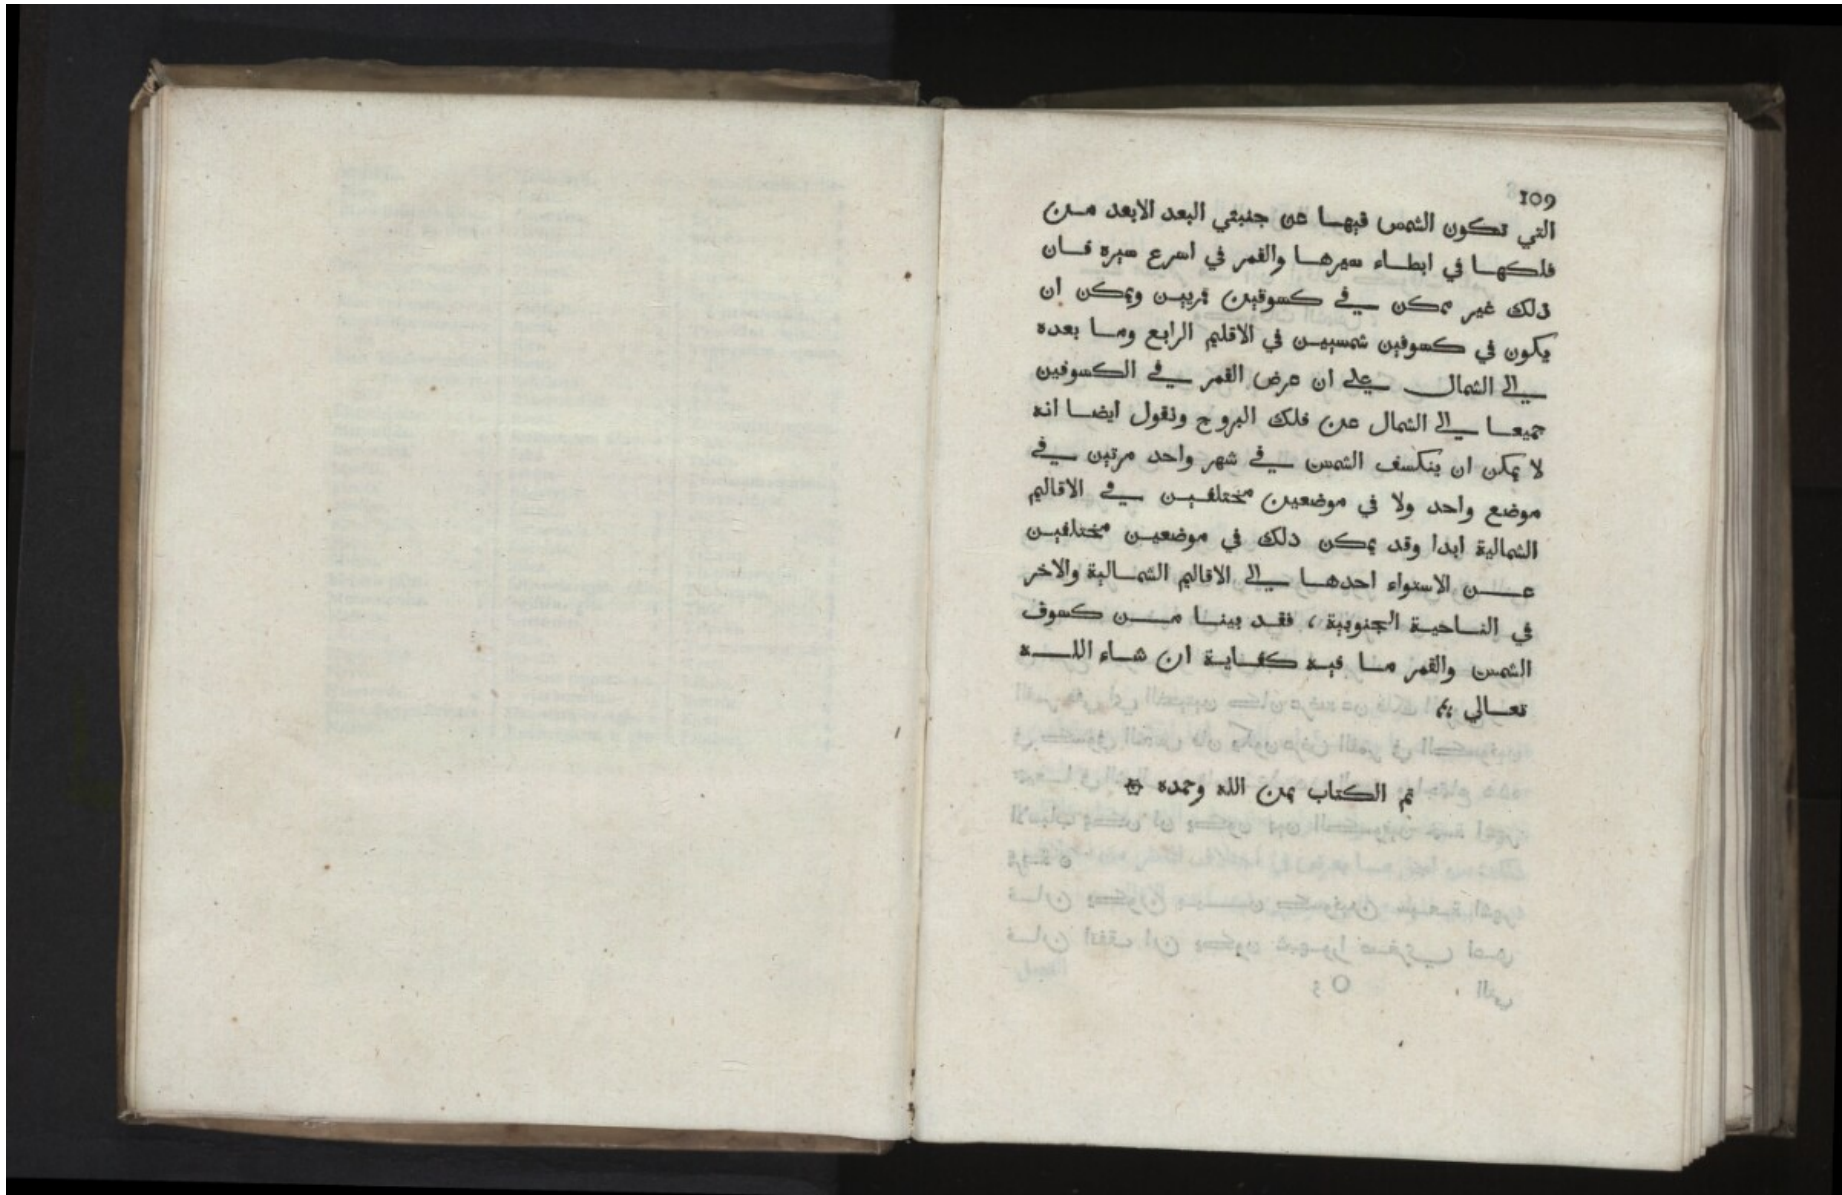 109
التي تكون الشمس فيها عن جنبتي البعد الابعد من
فلكها في ابطاء سيرها والقمر في اسرع سيره فان
ذلك غير ممكن في كسوفين قريبين ويمكن ان
يكون في كسوفين شمسيين في الاقليم الرابع وما بعده
الي الشمال علي ان عرض القمر في الكسوفين
جميعا الي الشمال عن فلك البروج ونقول ايضا انه
لا يمكن ان ينكسف الشمس في شهر واحد مرتين في
موضع واحد ولا في موضعين مختلفين في الاقاليم
الشمالية ابدا وقد يمكن ذلك في موضعين مختلفين
عن الاستواء احدها الي الاقاليم الشمالية والاخر
في الناحية الجنوبية ، فقد بينا من كسوف
الشمس والقمر ما فيه كفاية ان شاء الله
تعالي
تم الكتاب بمن الله وحمده